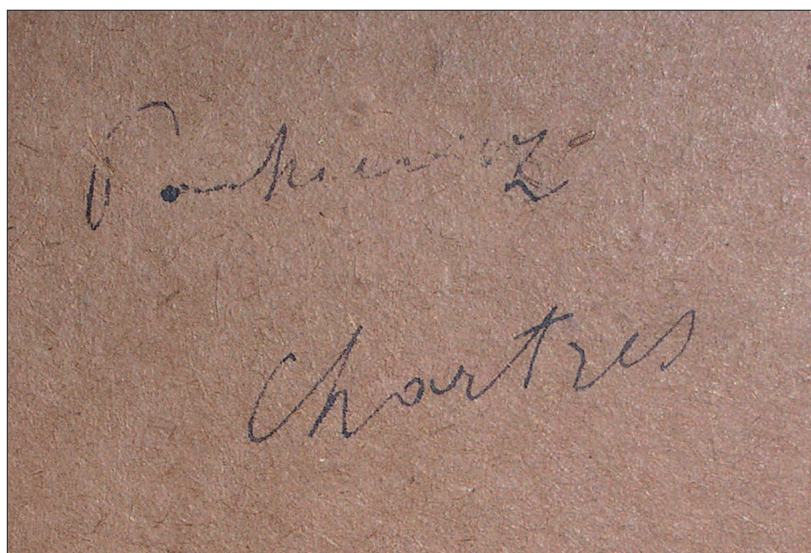 Pankiewicz
Chartres